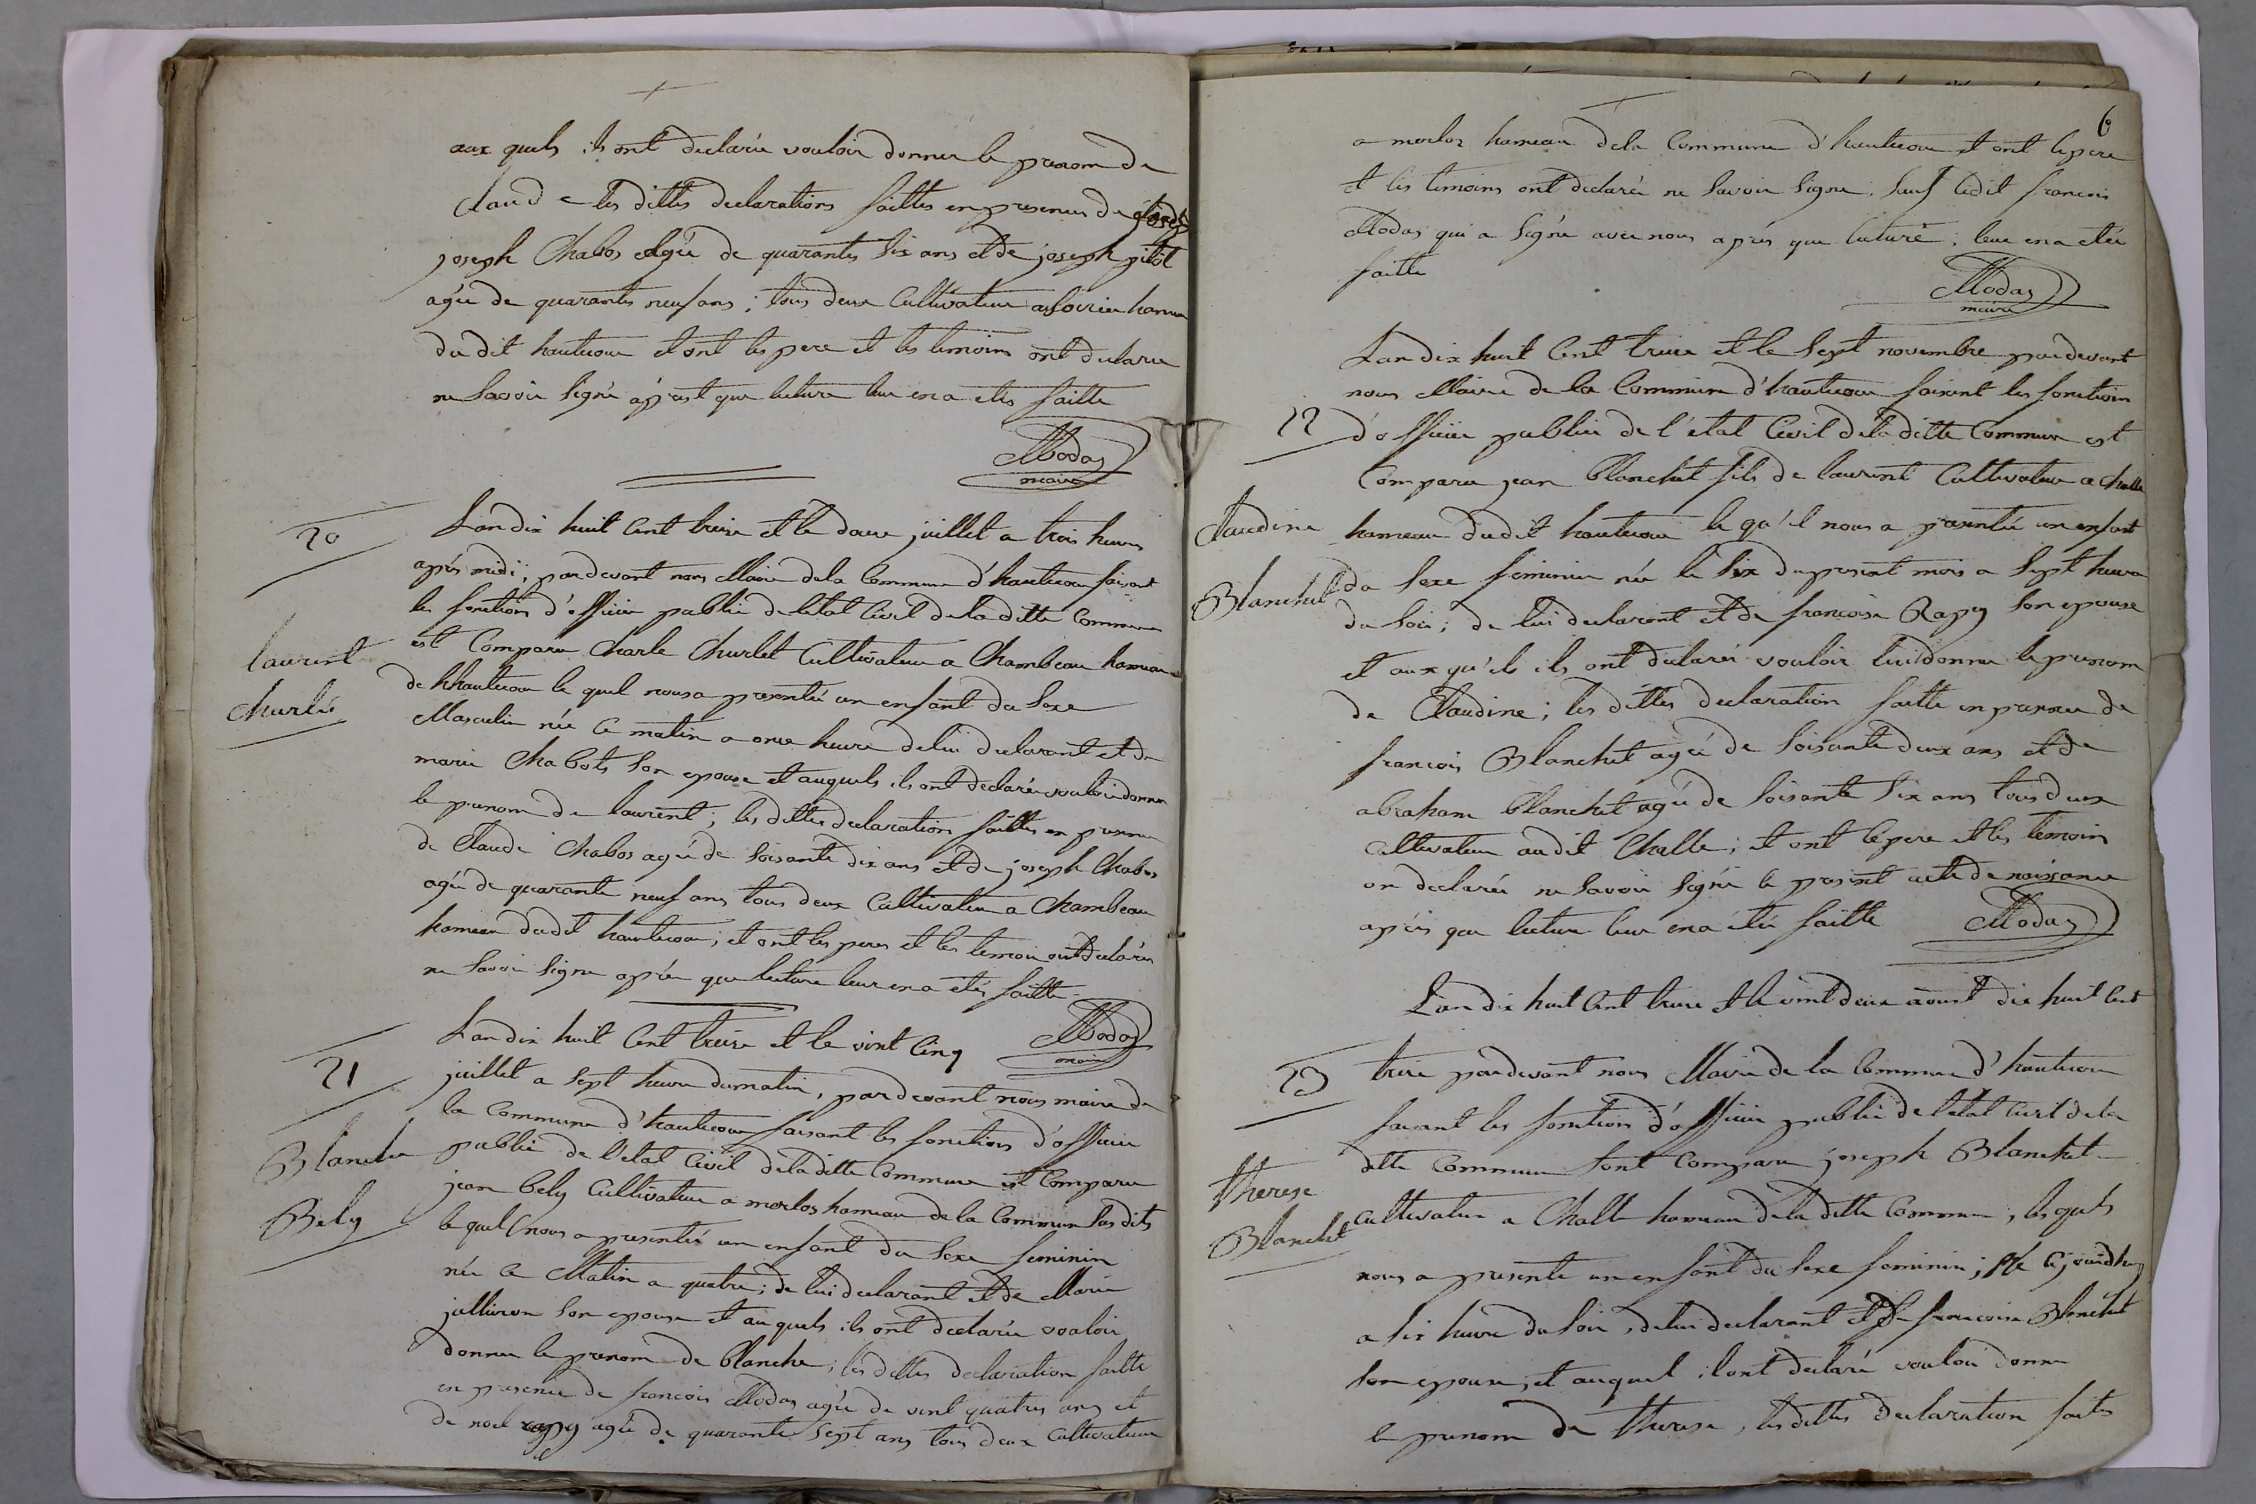 aux quels ils ont declarée vouloir donner le prenom de
Claude les dittes declarations faittes en presence de
joseph Chabos Agée de quarantes six ans et de joseph pitot
agée de quarantes neuf ans ; tous deux Cultivateur hamau
du dit hautecour et ont les pere et les temoins ont declarée
ne Savoir Signé aprest que lecture leur en a etés faitte
Modas
maire
20
laurent
churlet
Lan dix huit Cent treize et le douze juillet a trois heures
aprés midi ; pardevant nous Maire dela Commune d'hautecour faisant
les fonctions d'officier public de letat Civil de la ditte Commune
est Comparu Charle Churlet Cultivateur a Chambeau hameau
de hautecour le quel nous a presentée un enfant du Sexe
Masculin née ce matin a onze heure de lui declarant et de
marie Chabots Son epouse et auquels ils ont declarée vouloir donner
le prenom de laurent ; les dittes declarations faittes en presence
de Claude Chabos agée de Soisante dix ans et de joseph Chabos
agée de quarante neuf ans tous deux Cultivateur a Chambeau
hameau dudit hautecour ; et ont les peres et les temoin ont declarés
ne Savoir Signe aprés que lecture leur en a etés faitte
Modas
maire
21
Blanche
Bely
Lan dix huit Cent treize et le vint Cinq
juillet a Sept heure du matin, pardevant nous maire de
la Commune d'hautecour faisant les fonctions d'officier
public de l'etat Civil de la ditte Commune est Comparu
jean Bely Cultivateur a morlos hameau de la Commune Sus dits
le quel nous a presentés un enfant du Sexe feminin
née ce Matin a quatre ; de lui declarant et de Marie
jullieron Son epouse et auquels ils ont declarée vouloir
donner le prenom de blanche ; les dittes declaration faitte
en presence de francois Modas agée de vint quatres ans et
de noel rapy agée de quarante Sept ans tous deux Cultivateur
6
a morlos hameau dela Commune d'hautecour et ont lepere
et les temoins ont declarée ne Savoir Signe ; Sauf ledit francois
Modas qui a Signé avec nous aprés que lecture ; leur en a etée
faitte
Modas
maire
22
Claudine
Blanchet
Lan dix huit Cent treize et le Sept novembre pardevant
nous Maire de la Commune d'hautecour faisant les fonctions
d'officier publice de l'état Civil dela ditte Commune est
Comparu jean Blanchet fils de laurent Cultivateur a Challe
hameau dudit hautecour le qu'el nous a presentée un enfant
du Sexe feminin née le Six du present mois a Sept heure
du Soir ; de lui declarant et de francoise Rapy Son epouse
et aux qu'els ils ont declarée vouloir lui donner le prenom
de Claudine ; les dittes declaration faitte en presence de
francois Blanchet agée de Soisante deux ans et de
abraham blanchet agée de Soisante Six ans tous deux
Cultivateur audit Challe ; et ont le pere et les temoin
on declarée ne Savoir Signé le present acte de naissance
aprés que lecture leur en a étée faitte
Modas
23
therese
Blanchet
Lan dix huit Cent treize et le vint deux aoust dix huit Cent
treize pardevant nous Maire de la Commune d'hautecour
faisant les fonction d'officier public de l'etat Civil dela
ditte Commune Sont Comparu joseph Blanchet
cultivateur a Challe hameau dela ditte Commune, les quels
nous a presente un enfant du Sexe feminin ; née cejourdhuy
a Six heure du Soir, de lui declarant et de francoise Blanchet
Son epouse, et auquel ilont declaré vouloir donne
le prenom de therese, les dittes declaration faites